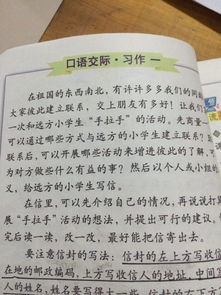 口语交际·习作一
在祖国的东西南北，有许许多多我们的同
大家彼此建立联系，交上朋友有多好！让我们
一次和远方小学生“手拉手”的活动。先商量一
可以通过哪些方式与远方的小学生建立联系？
联系后，可以开展哪些活动来增进彼此的了解，
为对方做些什么有益的事？然后以个人或小组的
义，给远方的小学生写信。
在信里，可以先介绍自己的情况，再说说对
展“手拉手”活动的想法，并提出可行的建议，
完后读一读，改一改，最好能把信寄出去。
要注意信封的写法：信封的左上方写收信
在地的邮政编码，上方写收信人的地址，中间
人的姓名，姓名要写得大一些，信封的右下方